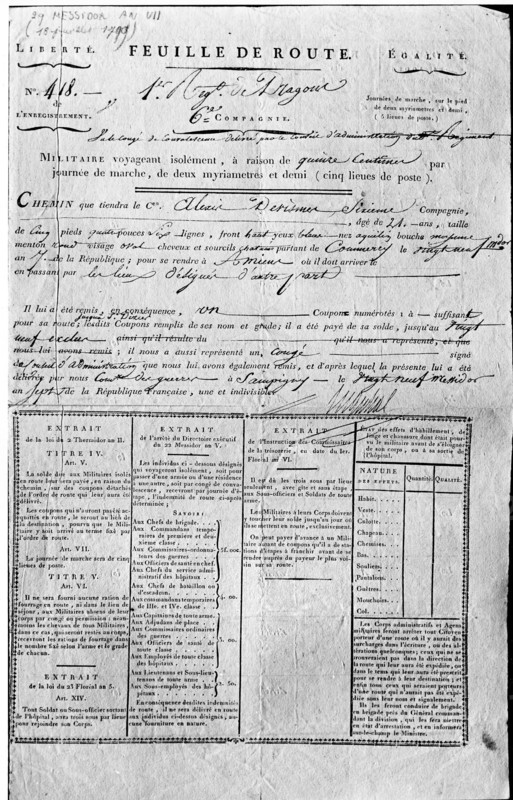 29 MESSIDOR AN VII
LIBERTÉ. FEUILLE DE ROUTE. ÉGALITÉ.
N.° 418.
de
L'ENREGISTREMENT.
1er Régt. de
6e COMPAGNIE.
Journées de marche, sur le pied
de deux myriametres et demi,
(5 lieues de poste).
MILITAIRE voyageant isolément, à raison de quinze Centimes par
journée de marche, de deux myriametres et demi (cinq lieues de poste).
CHEMIN que tiendra le Cen. Alexis Compagnie,
âgé de 21 ans, taille
de Cinq pieds quatre pouces lignes, front haut yeux bleus nez aquilin bouche moyenne
menton rond visage oval cheveux et sourcils partant de Commercy le vingt neuf
an 7 de la République; pour se rendre à Amiens où il doit arriver le
en passant par les lieux d'autre part
Il lui a été remis, en conséquence, un Coupons numérotés 1 à suffisant
pour sa route; lesdits Coupons remplis de ses nom et grade; il a été payé de sa solde, jusqu'au vingt
neuf ainsi qu'il résulte du qu'il nous a représenté, et que
nous lui avons remis; il nous a aussi représenté un Congé signé
d'administration que nous lui avons également remis, et d'après lequel la présente lui a été
délivrée par nous des guerres à Sampigny le vingt neuf Messidor
an Sept de la République Française, une et indivisible.
EXTRAIT
de la loi du 2 Thermidor an II.
TITRE IV.
Art. V.
La solde due aux Militaires isolés
en route leur sera payée, en raison du
chemin, sur des coupons détachés
de l'ordre de route qui leur aura été
délivré.
Les coupons qui n'auront pas été acquittés
en route, le seront au lieu de
la destination, pourvu que le Militaire
y soit arrivé au terme fixé par
l'ordre de route.
Art. VII.
La journée de marche sera de cinq
lieues de poste.
TITRE V.
Art. VI.
Il ne sera fourni aucune ration de
fourrage en route, ni dans le lieu de
séjour, aux Militaires absens de leur
corps par congé ou permission: néanmoins
les chevaux de tous Militaires
dans ce cas, qui seront restés au corps,
recevront les rations de fourrage dans
le nombre fixé selon l'arme et le grade
de chacun.
EXTRAIT
de la loi du 23 Floréal an 5.
Art. XIV.
Tout Soldat ou Sous-officier sortant
de l'hôpital, aura trois sous par lieue
pour rejoindre son Corps.
EXTRAIT
de l'arrêté du Directoire exécutif
du 22 Messidor an V.
Les individus ci-dessous désignés
qui voyageront isolément, soit pour
passer d'une armée ou d'une résidence
à une autre, soit par congé de convalescence,
recevront par journée d'étape,
l'indemnité de route ci-après
déterminée;
SAVOIR:
Aux Chefs de brigade
Aux Commandans temporaires
de premiere et deuxième
classe.
Aux Commissaires-ordonnateurs
des guerres
Aux Officiers de santé en chef.
Aux Chefs du service administratif
des hôpitaux
5f. 00c.
Aux Chefs de bataillon ou
d'escadron.
Aux commandans temporaires
de IIIe. et IVe. classe
4. 00.
Aux Capitaines de toute arme.
Aux Adjudans de place
Aux Commissaires ordinaires
des guerres
Aux Officiers de santé de
toute classe
Aux Employés de toute classe
des hôpitaux.
3. 00.
Aux Lieutenans et Sous-lieutenans
de toute arme
Aux Sous-employés des hôpitaux
2. 50.
En conséquence desdites indemnités
de route, il ne sera délivré en route
aux individus ci-dessus désignés, aucune
fourniture en nature.
EXTRAIT
de l'Instruction des Commissaires
de la trésorerie, en date du 1er.
Floréal an VI.
Il est dû les trois sous par lieue
seulement, avec gîte et sans étape
aux Sous-officiers et Soldats de toute
arme.
Les Militaires à leurs Corps doivent
y toucher leur solde jusqu'au jour où
ils se mettent en route, exclusivement.
On peut payer d'avance à un Militaire
autant de coupons qu'il a de stations
d'étapes à franchir avant de se
rendre auprès du payeur le plus voisin
sur sa route.
ÉTAT des effets d'habillement, de
linge et chaussure dont était pourvu
le militaire avant de s'éloigner
de son corps, ou à sa sortie de
l'hôpital.
NATURE
DES EFFETS. Quantité. QUALITÉ.
Habit.
Veste.
Culotte.
Chapeau.
Chemises.
Bas.
Souliers.
Pantalon.
Guêtres.
Mouchoirs.
Col.
Les Corps administratifs et Agens
militaires feront arrêter tout Citoyen
porteur d'une route où il y aurait des
surcharges dans l'écriture, ou des altérations
quelconques; ceux qui ne se
trouveraient pas dans la direction de
la route qui leur aura été expédiée, ou
dans le tems qui leur aura été prescrit
pour se rendre à leur destination; et
enfin tous ceux qui seraient porteurs
d'une route qui n'aurait pas été expédiée
sous leur nom et signalement.
Ils les feront conduire de brigade
en brigade près du Général commandant
la division, qui les fera mettre
en état d'arrestation, et en informera
sur-le-champ le Ministre.